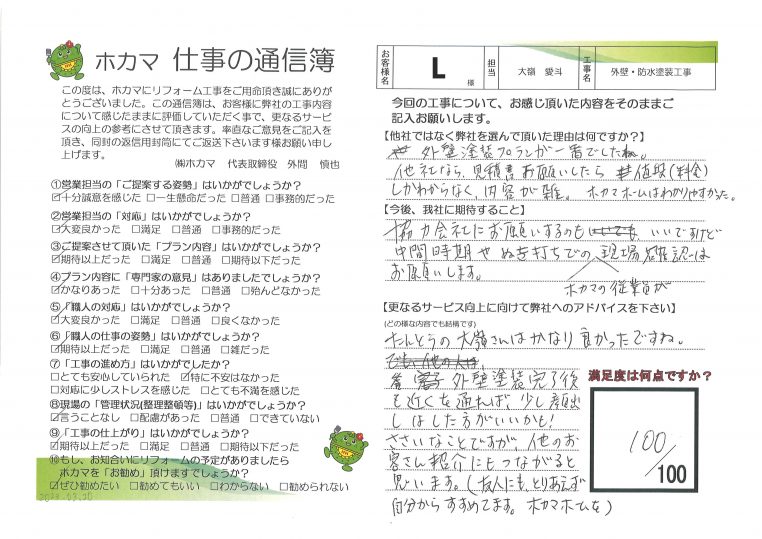 ホカマ 仕事の通信簿
この度は、ホカマにリフォーム工事をご用命頂き誠にありが
とうございました。この通信簿は、お客様に弊社の工事内容
について感じたままに評価していただく事で、更なるサービ
スの向上の参考にさせて頂きます。率直なご意見をご記入を
頂き、同封の返信用封筒にてご返送下さいます様お願い申し
上げます。
㈱ホカマ 代表取締役 外間 慎也
①営業担当の「ご提案する姿勢」はいかがでしょうか?
☑十分誠意を感じた □一生懸命だった □普通 □事務的だった
②営業担当の「対応」はいかがでしょうか?
☑大変良かった □満足 □普通 □事務的だった
③ご提案させて頂いた「プラン内容」はいかがでしょうか?
☑期待以上だった □満足 □普通 □期待以下だった
④プラン内容に「専門家の意見」はありましたでしょうか?
☑かなりあった □十分あった □普通 □殆んどなかった
⑤「職人の対応」はいかがでしょうか?
☑大変良かった □満足 □普通 □良くなかった
⑥「職人の仕事の姿勢」はいかがでしょうか?
☑期待以上だった □満足 □普通 □雑だった
⑦「工事の進め方」はいかがでしたか?
□とても安心していられた ☑特に不安はなかった
□対応に少しストレスを感じた □とても不満を感じた
⑧現場の「管理状況(整理整頓等)」はいかがでしょうか?
☑言うことなし □配慮があった □普通 □できていない
⑨「工事の仕上がり」はいかがでしょうか?
☑期待以上だった □満足 □普通 □期待以下だった
⑩もし、お知合いにリフォームの予定がありましたら
ホカマを「お勧め」頂けますでしょうか?
☑ぜひ勧めたい □勧めてもいい □わからない □勧められない
お客様名 L 様 担当 大嶺 愛斗 工事名 外壁・防水塗装工事
今回の工事について、お感じ頂いた内容をそのままご
記入お願いします。
【他社ではなく弊社を選んで頂いた理由は何ですか?】
外壁塗装プランが一番でしたね。
他社なら、見積書お願いしたら 値段(料金)
しかわからなく、内容が雑。 ホカマホームはわかりやすかった。
【今後、我社に期待すること】
協力会社にお願いするのも いいですけど
中間時期や ぬき打ちでの 現場確認は
お願いします。
ホカマの従業員が
【更なるサービス向上に向けて弊社へのアドバイスを下さい】
(どの様な内容でも結構です)
たんとうの大嶺さんはかなり良かったですね。
でも、他の人は、
外壁塗装完了後
も近くを通れば、少し顔出
しはした方がいいかも!
ささいなことですが、他のお
客さん紹介にもつながると
思います。(友人にも、とりあえず
自分からすすめてます。ホカマホームを)
満足度は何点ですか?
100/100